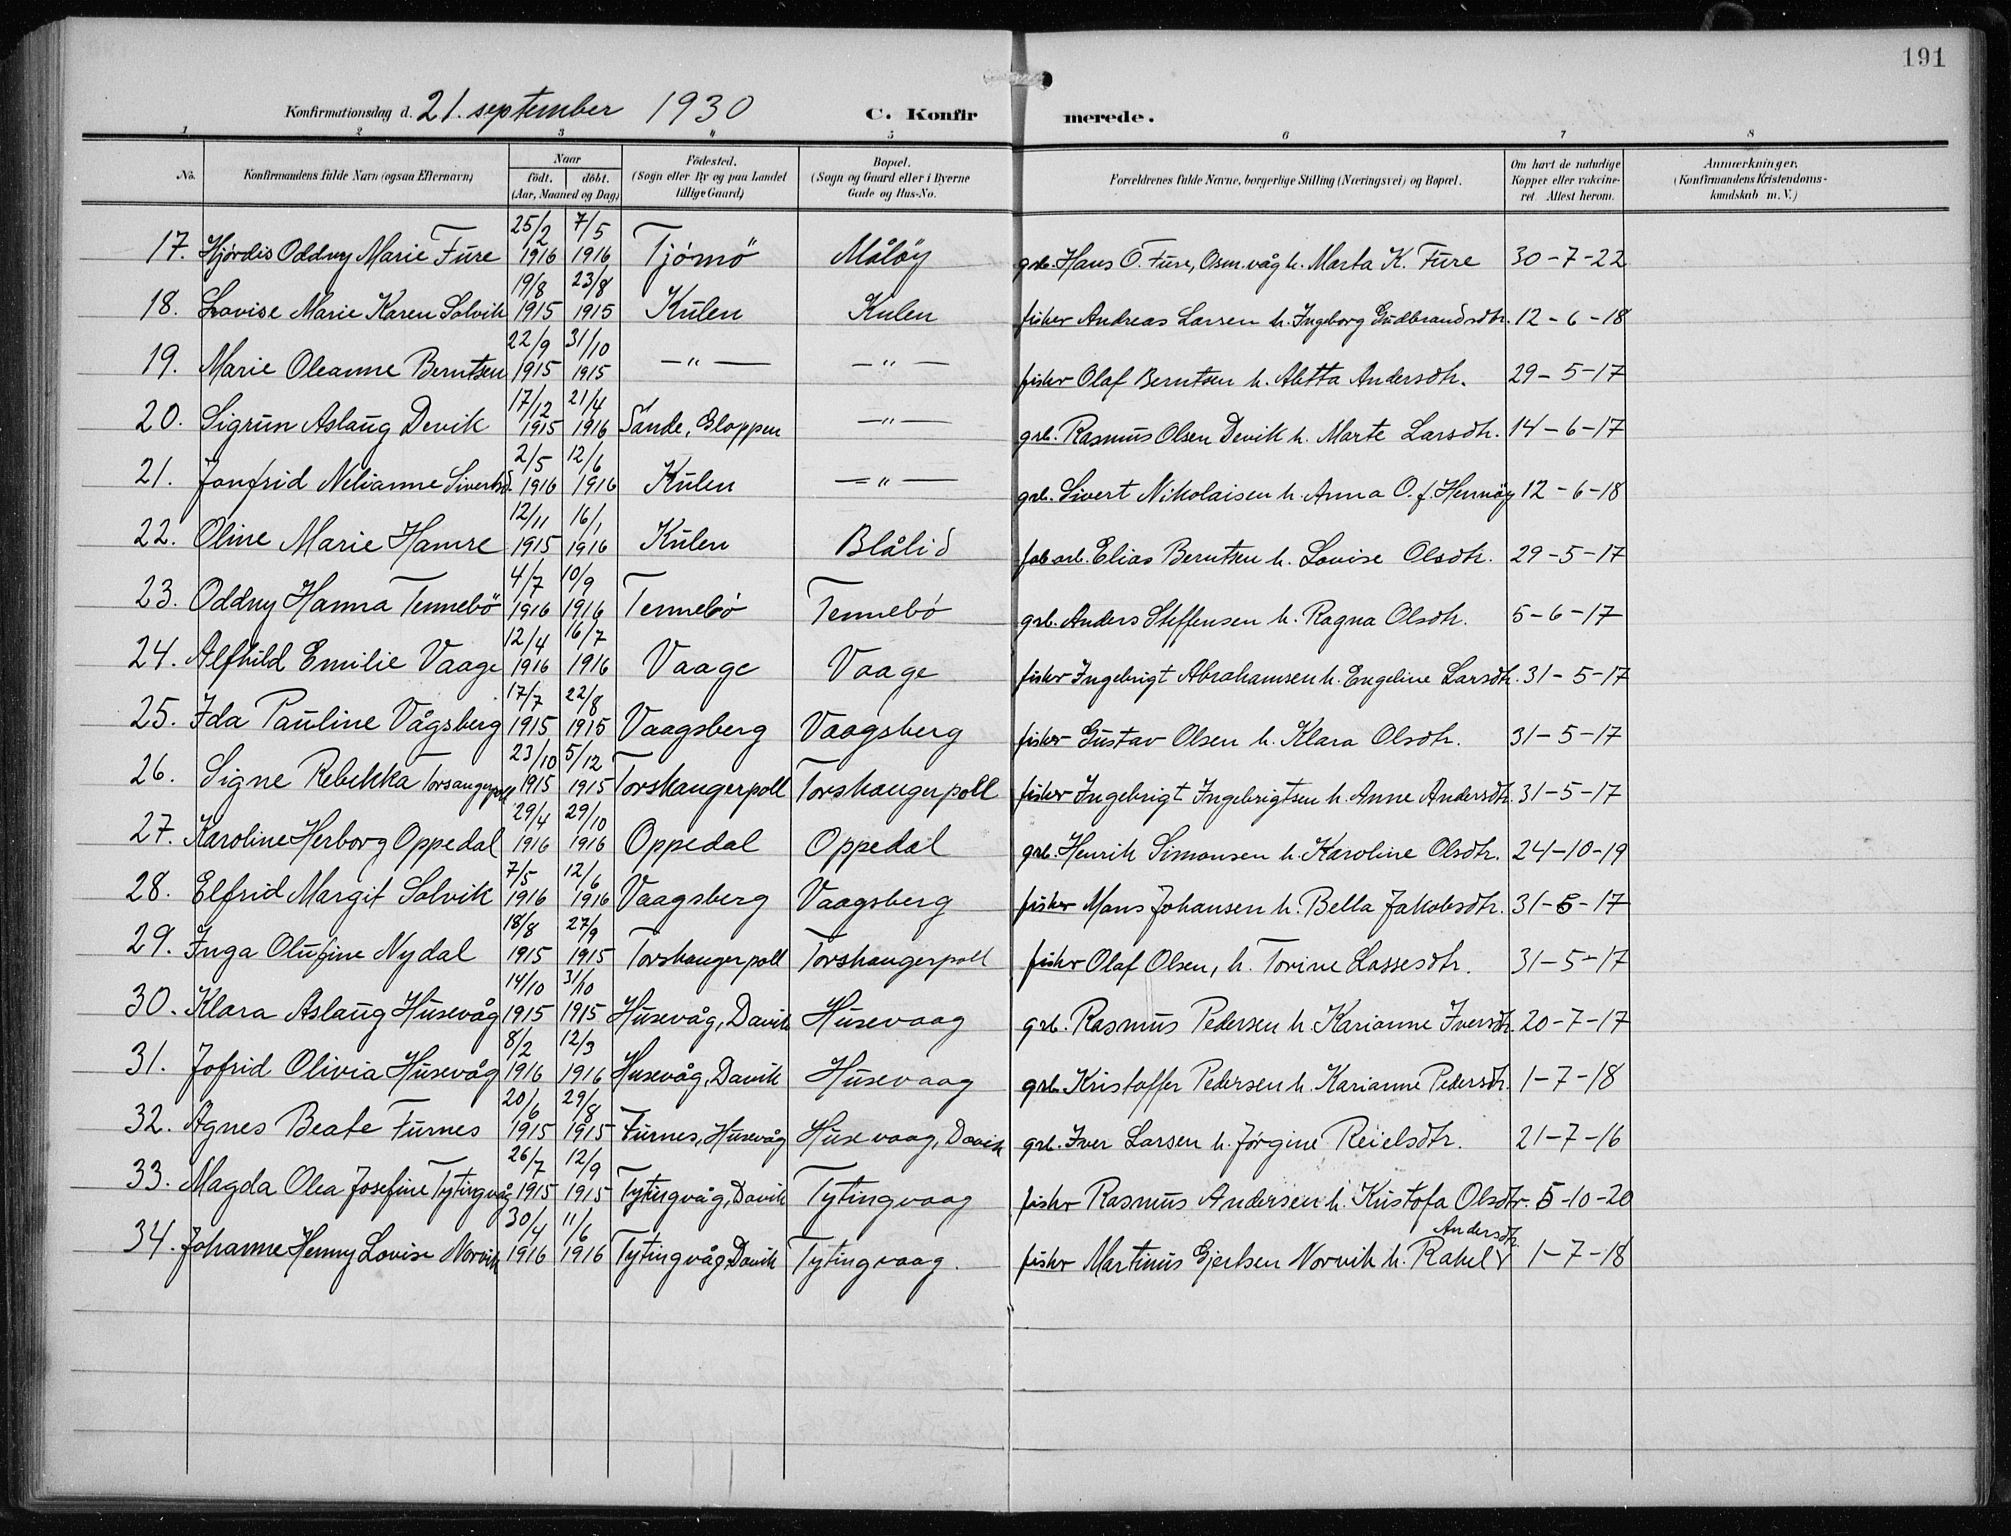 191
Konfirmationsdag d. 21. september 1930 C. Konfirmerede.
1 2 3 4 5 6 7 8
No. Konfirmandens fulde Navn (ogsaa Efternavn) Naar født. døbt. (Aar, Maaned og Dag) Födested. (Sogn eller By og paa Landet tillige Gaard) Bopæl. (Sogn og Gaard eller i Byerne Gade og Hus-No. Forældrenes fulde Navne, borgerlige Stilling (Næringsvei) og Bopæl. Om havt de naturlige Kopper eller vakcineret. Attest herom. Anmærkninger, (Konfirmandens Kristendomskundskab m. V.)
17. Hjördis Oddny Marie Fure 25/2 1916 7/5 1916 Tjømö Måløy grb. Hans O. Fure, Osm.våg h. Marta K. Fure 30-7-22
18. Lovise Marie Karen Solvik 19/8 1915 23/8 1915 Kulen Kulen fisker Andreas Larsen h. Ingeborg Gudbrandsdtr. 12-6-18
19. Marie Oleanne Berntsen 22/9 1915 31/10 1915 —"— —"— fisker Olaf Berntsen h. Aletta Andersdtr. 29-5-17
20. Sigrun Aslaug Devik 17/12 1915 21/4 1916 Sande, Gloppen —"— grb. Rasmus Olsen Devik h. Marte Larsdtr. 14-6-17
21. Jonfrid Nelianne Sivertsd. 2/5 1916 12/6 1916 Kulen —"— grb. Sivert Nikolaisen h. Anna O. f. Hennøy 12-6-18
22. Oline Marie Hamre 12/11 1915 16/1 1916 Kulen Blålid fab.arb. Elias Berntsen h. Lovise Olsdtr. 29-5-17
23. Oddny Hanna Tennebö 4/7 1916 10/9 1916 Tennebø Tennebø grb. Anders Steffensen h. Ragna Olsdtr. 5-6-17
24. Alfhild Emilie Vaage 12/4 1916 16/7 1916 Vaage Vaage fisker Ingebrigt Abrahamsen h. Engeline Larsdtr. 31-5-17
25. Ida Pauline Vågsberg 17/7 1915 22/8 1915 Vaagsberg Vaagsberg fisker Gustav Olsen h. Klara Olsdtr. 31-5-17
26. Signe Rebekka Torsangerpoll 23/10 1915 5/12 1915 Torskangerpoll Torskangerpoll fisker Ingebrigt Ingebrigtsen h. Anne Andersdtr. 31-5-17
27. Karoline Herborg Oppedal 29/4 1916 29/10 1916 Oppedal Oppedal grb. Henrik Simonsen h. Karoline Olsdtr. 24-10-19
28. Elfrid Margit Solvik 7/5 1916 12/6 1916 Vaagsberg Vaagsberg fisker Mons Johansen h. Bella Jakobsdtr. 31-5-17
29. Inga Olufine Nydal 18/8 1915 27/9 1915 Torskangerpoll Torskangerpoll fisker Olaf Olsen, h. Torine Lassesdtr. 31-5-17
30. Klara Aslaug Husevåg 14/10 1915 31/10 1915 Husevåg, Davik Husevaag grb. Rasmus Pedersen h. Karianne Iversdtr. 20-7-17
31. Jofrid Olivia Husevåg 8/2 1916 12/3 1916 Husevåg, Davik Husevaag grb. Kristoffer Pedersen h. Karianne Pedersdtr. 1-7-18
32. Agnes Beate Furnes 20/6 1915 29/8 1915 Furnes, Husevåg Husevaag, Davik grb. Iver Larsen h. Jørgine Reielsdtr. 21-7-16
33. Magda Olea Josefine Tytingvåg 26/7 1915 12/9 1915 Tytingvåg, Davik Tytingvaag fisker Rasmus Andersen h. Kristofa Olsdtr. 5-10-20
34. Johanne Henny Lovise Norvik 30/4 1916 11/6 1916 Tytingvåg, Davik Tytingvaag. fisker Martinus Gjertsen Norvik h. Rakel Andersdtr. 1-7-18